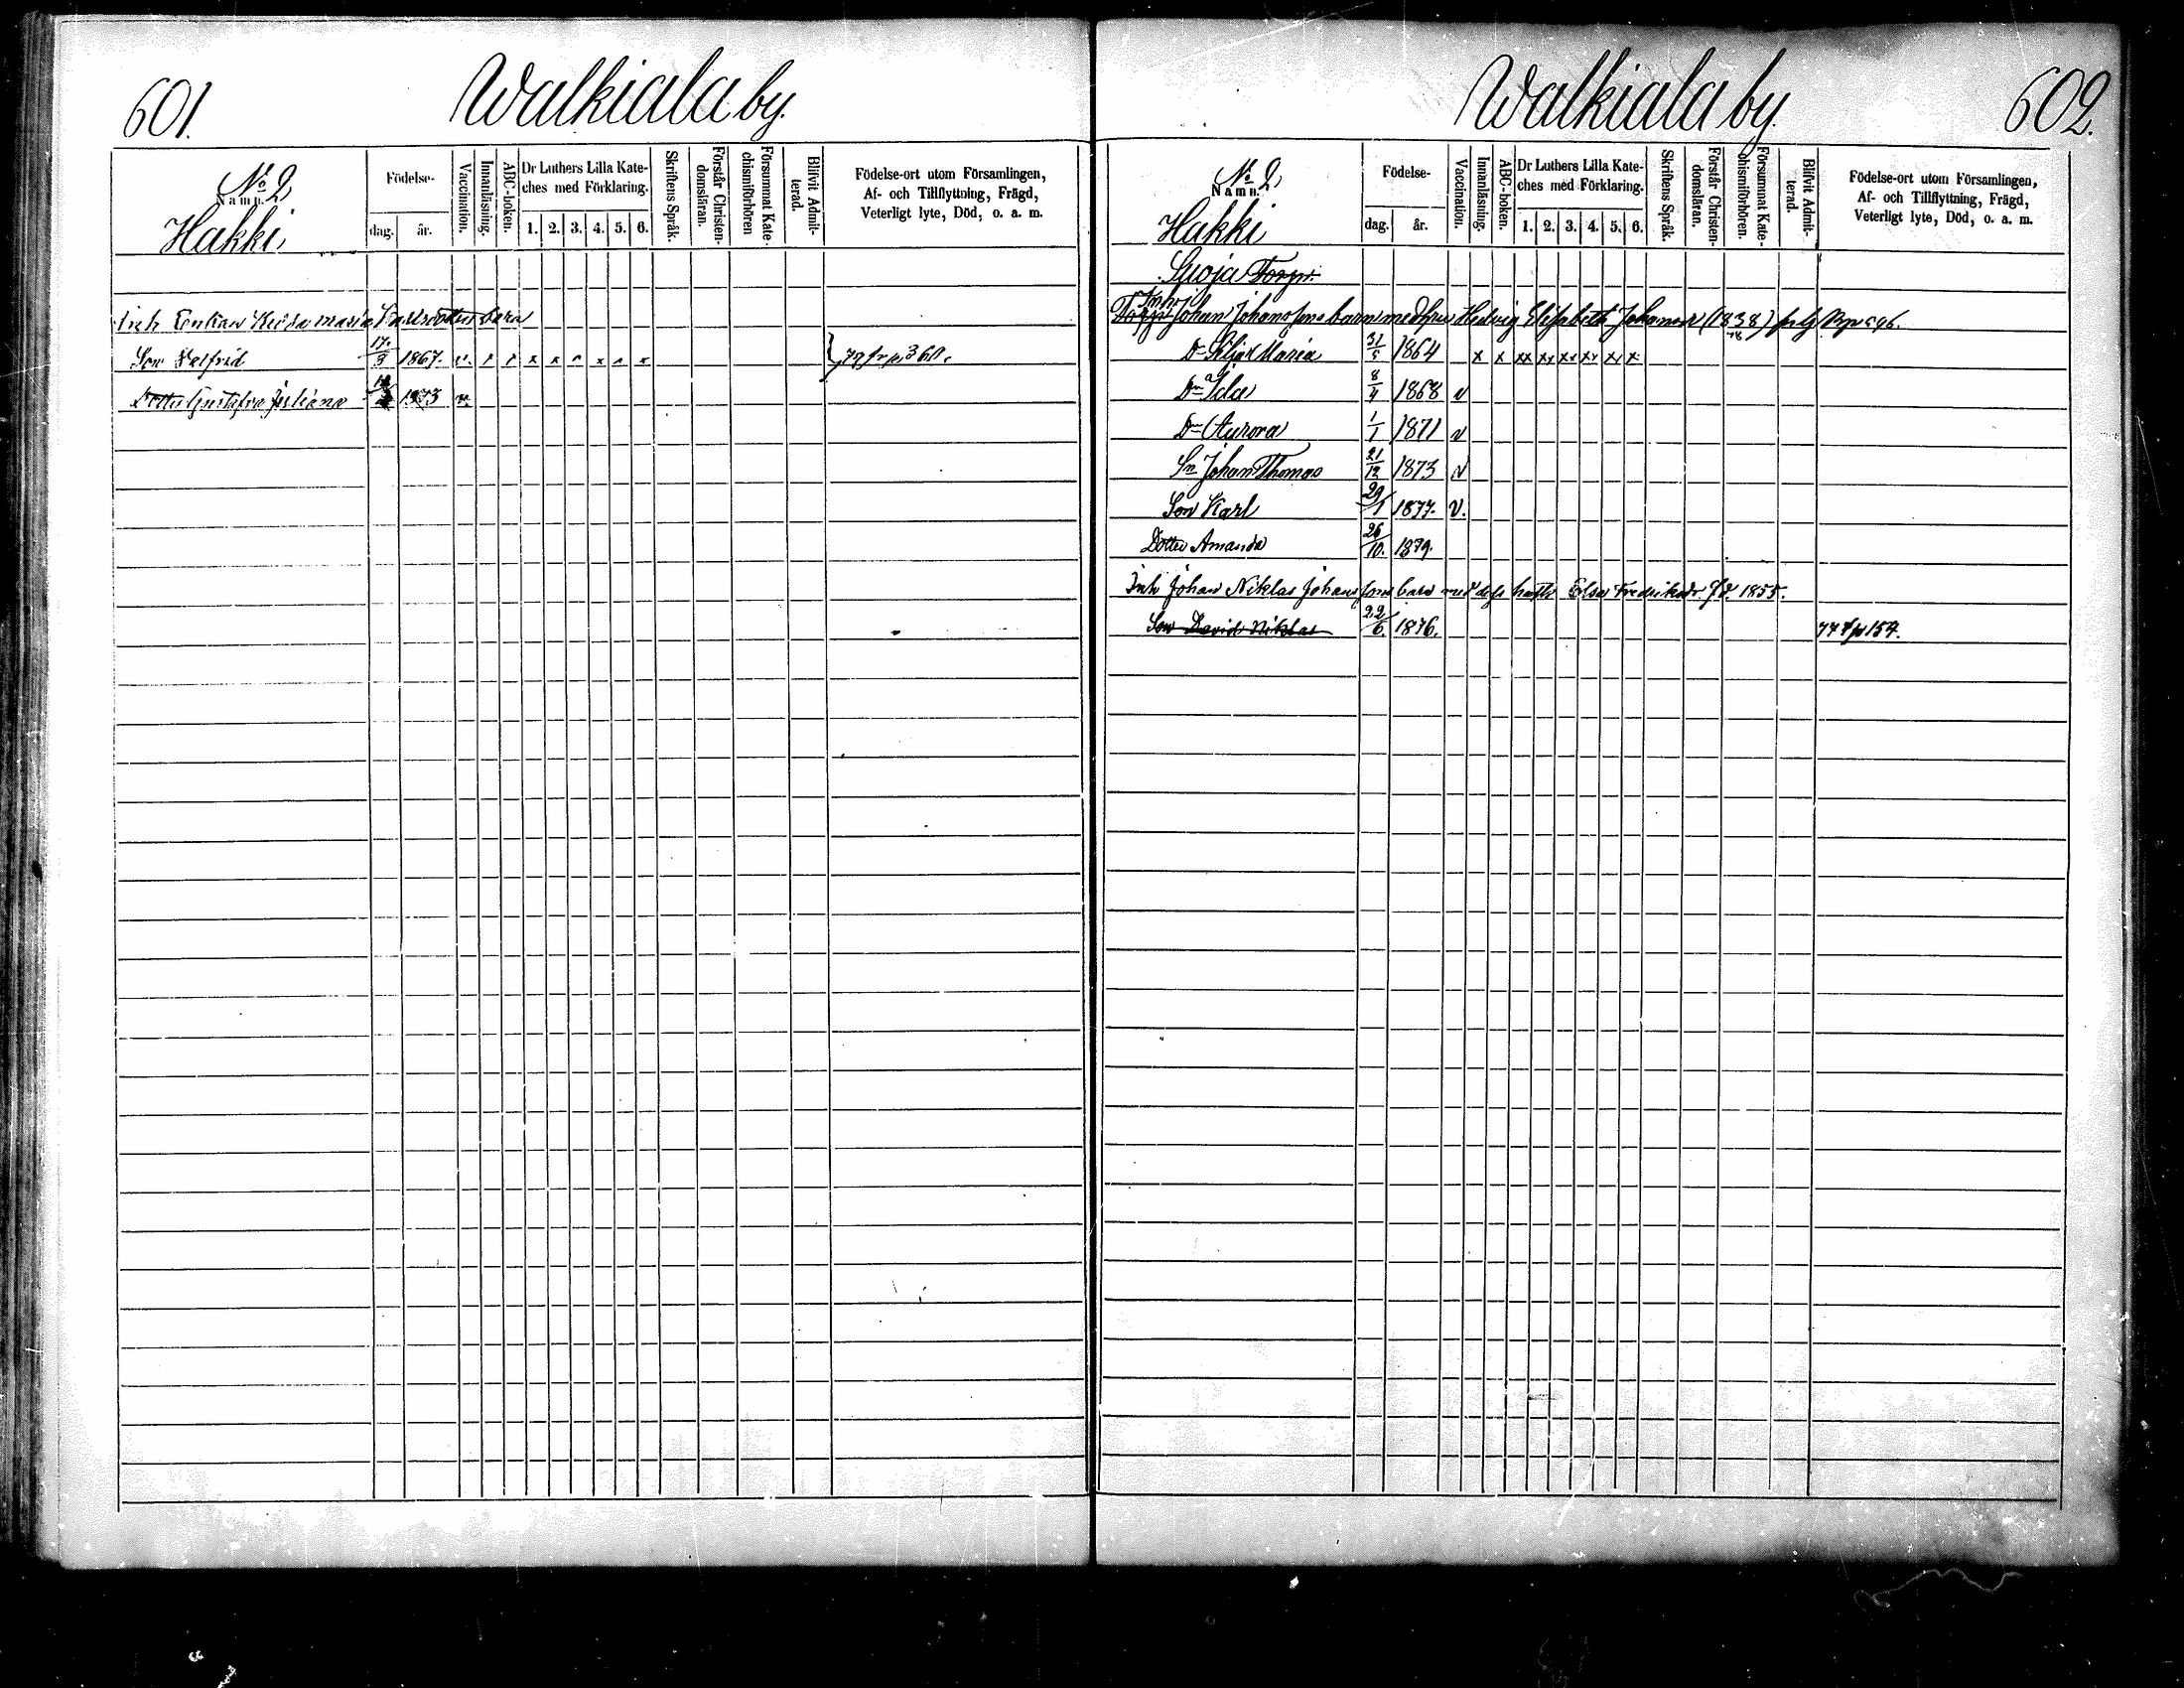 601.
Walkiala by.
No 2,
Namn.
Hakki,
Födelse-
dag. år.
Vaccination.
Innanläsning.
ABC-boken.
Dr Luthers Lilla Kate-
ches med Förklaring.
1. 2. 3. 4. 5. 6.
Skriftens Språk.
Förstår Christen-
domsläran.
Försummat Kate-
chismiförhören
Blifvit Admit-
terad.
Födelse-ort utom Församlingen,
Af- och Tillflyttning, Frägd,
Veterligt lyte, Död, o. a. m.
Inh Enkan Hedda Maria barn
Son 17/3 1867. v. x x x x x x
Dotter Gustafva Juliana 1873 v.
79 fr p 360.
Walkiala by.
602.
No 2,
Namn.
Hakki
Födelse-
dag. år.
Vaccination.
Innanläsning.
ABC-boken.
Dr Luthers Lilla Kate-
ches med Förklaring.
1. 2. 3. 4. 5. 6.
Skriftens Språk.
Förstår Christen-
domsläran.
Försummat Kate-
chismiförhören.
Blifvit Admit-
terad.
Födelse-ort utom Församlingen,
Af- och Tillflyttning, Frägd,
Veterligt lyte, Död, o. a. m.
Suoja Torp.
Inh
Torp Johan Johanssons barn med hu Hedvig Elisabeth Johansdr (1838)
Dr Silja Maria 31/5 1864 x x xx xx xx xx x x
Dr Ida 8/4 1868 v
Dr Aurora 1/1 1871 v
Sn Johan Thomas 21/12 1873 v
Son Karl 29/1 1877. v.
Dotter Amanda 26/10. 1879.
Inh Johan Niklas Johanssons barn med dess hustr Elsa Fredriksdr fd. 1855.
Son David Niklas 22/6. 1876. 77 f p 157.